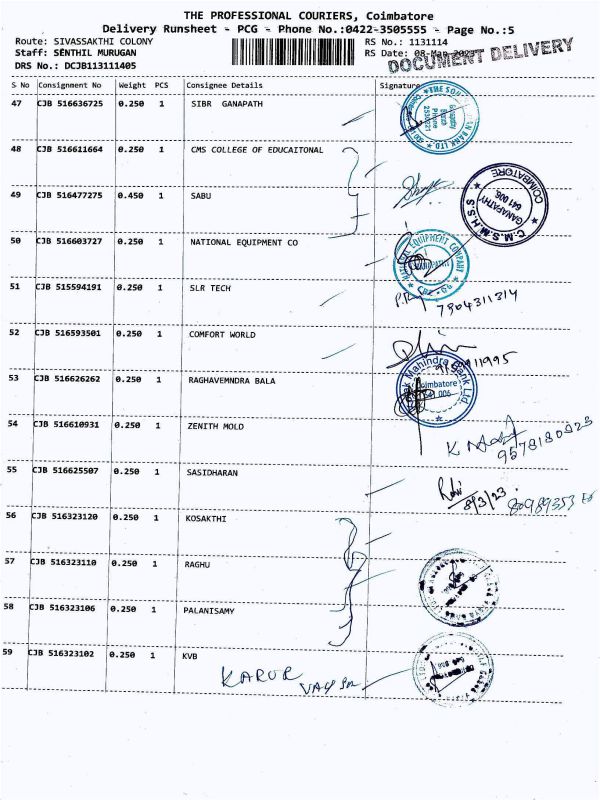 THE PROFESSIONAL COURIERS, Coimbatore
Delivery Runsheet - PCG - Phone No.:0422-3505555 - Page No.:5
Route: SIVASSAKTHI COLONY RS No.: 1131114
Staff: SENTHIL MURUGAN RS Date: 08-Mar-2023
DRS No.: DCJB113111405 DOCUMENT DELIVERY
S No Consignment No Weight PCS Consignee Details Signature
47 CJB 516636725 0.250 1 SIBR GANAPATH
48 CJB 516611664 0.250 1 CMS COLLEGE OF EDUCAITONAL
C.M.S.M.H.S.S
GANAPATHY
641 006.
COIMBATORE
49 CJB 516477275 0.450 1 SABU
50 CJB 516603727 0.250 1 NATIONAL EQUIPMENT CO
NATIONAL EQUIPMENT COMPANY
51 CJB 515594191 0.250 1 SLR TECH
7904311314
52 CJB 516593501 0.250 1 COMFORT WORLD
53 CJB 516626262 0.250 1 RAGHAVEMNDRA BALA
Mahindra Bank Ltd.
Coimbatore
006
54 CJB 516610931 0.250 1 ZENITH MOLD
9578180923
55 CJB 516625507 0.250 1 SASIDHARAN
8/3/23
56 CJB 516323120 0.250 1 KOSAKTHI
57 CJB 516323110 0.250 1 RAGHU
58 CJB 516323106 0.250 1 PALANISAMY
59 CJB 516323102 0.250 1 KVB
KARUR